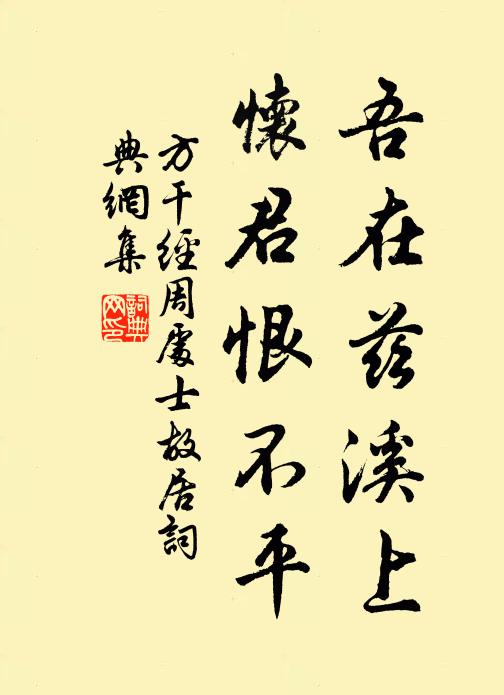 吾在茲溪上
懷君恨不平
方干經周處士故居詞
典網集
詞典網印